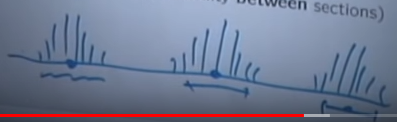 between sections)